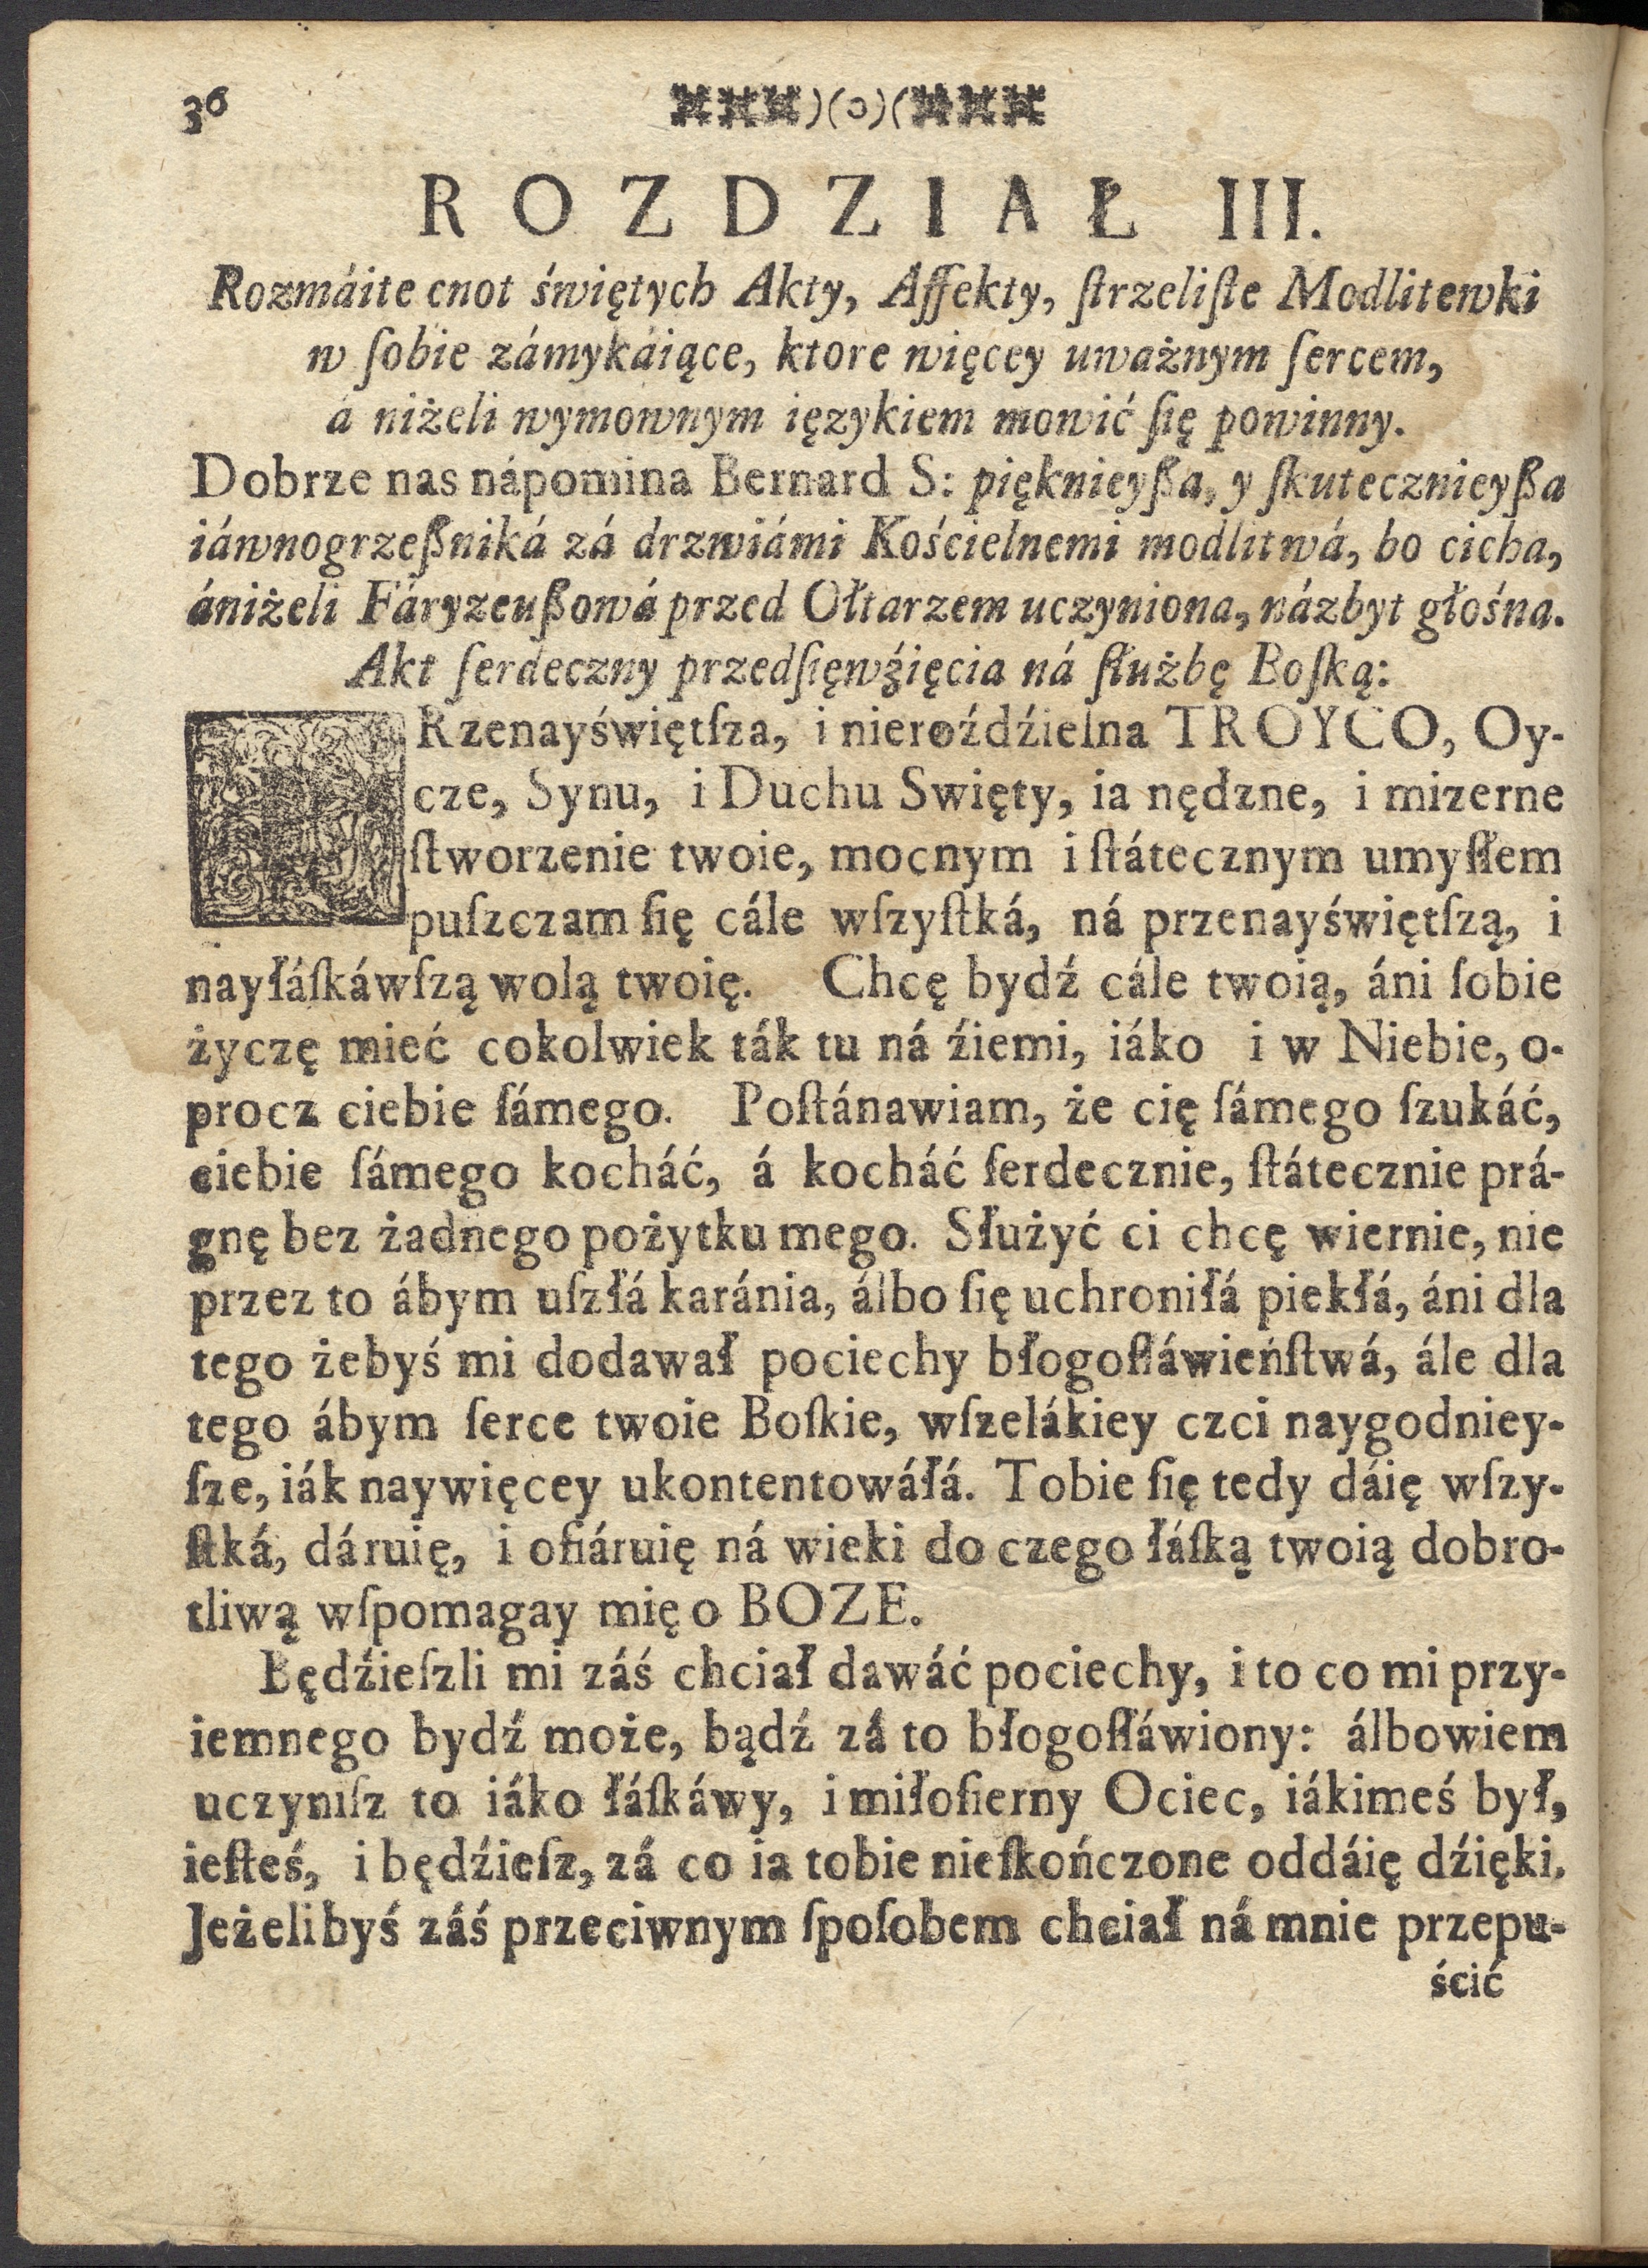 36 )(ɔ)(
ROZDZIAŁ III.
Rozmáite cnot świętych Akty, Affekty, ſtrzeliſte Modlitewki
w ſobie zámykáiące, ktore więcey uważnym ſercem,
á niżeli wymownym ięzykiem mowić ſię powinny.
Dobrze nas nápomina Bernard S: pięknieyßa, y ſkutecznieyßa
iáwnogrzeßniká zá drzwiámi Kościelnemi modlitwá, bo cicha,
ániżeli Fáryzeußowá przed Ołtarzem uczyniona, názbyt głośna.
Akt ſerdeczny przedſięwźięcia ná ſłużbę Boſką:
PRzenayświętſza, i nieroźdźielna TROYCO, Oy-
cze, Synu, i Duchu Swięty, ia nędzne, i mizerne
ſtworzenie twoie, mocnym i ſtátecznym umyſłem
puſzczam ſię cále wſzyſtká, ná przenayświętſzą, i
nayłáſkáwſzą wolą twoię. Chcę bydź cále twoią, áni ſobie
życzę mieć cokolwiek ták tu ná źiemi, iáko i w Niebie, o-
procz ciebie ſámego. Poſtánawiam, że cię ſámego ſzukáć,
ciebie ſámego kocháć, á kocháć ſerdecznie, ſtátecznie prá-
gnę bez żadnego pożytku mego. Służyć ci chcę wiernie, nie
przez to ábym uſzłá karánia, álbo ſię uchroniłá piekłá, áni dla
tego żebyś mi dodawał pociechy błogoſłáwieńſtwá, ále dla
tego ábym ſerce twoie Boſkie, wſzelákiey czci naygodniey-
ſze, iák naywięcey ukontentowáłá. Tobie ſię tedy dáię wſzy-
ſtká, dáruię, i ofiáruię ná wieki do czego łáſką twoią dobro-
tliwą wſpomagay mię o BOZE.
Będźieſzli mi záś chciał dawáć pociechy, i to co mi przy-
iemnego bydź może, bądź zá to błogoſłáwiony: álbowiem
uczyniſz to iáko łáſkáwy, i miłoſierny Ociec, iákimeś był,
ieſteś, i będźieſz, zá co ia tobie nieſkończone oddáię dźięki.
Jeżelibyś záś przeciwnym ſpoſobem chciał ná mnie przepu-
ścić